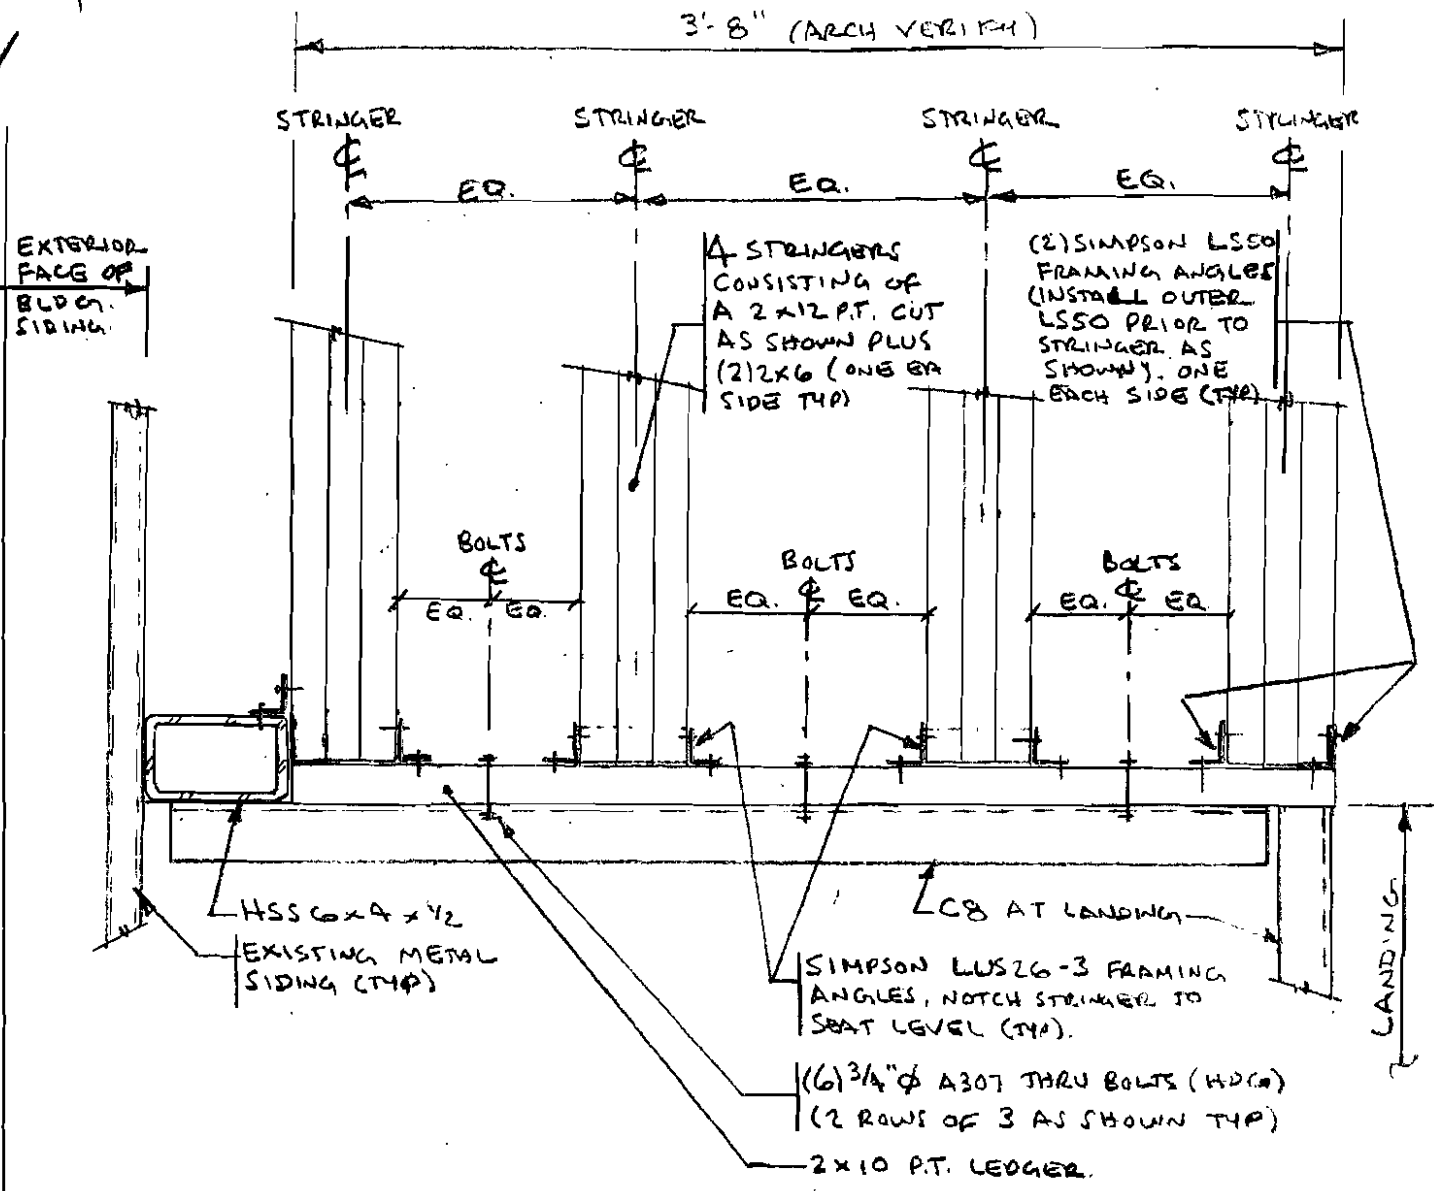 3'-8" (ARCH VERIFY)
STRINGER
STRINGER
STRINGER
STRINGER
℄
℄
℄
℄
EQ.
EQ.
EQ.
EXTERIOR
FACE OF
BLDG.
SIDING.
4 STRINGERS
CONSISTING OF
A 2x12 P.T. CUT
AS SHOWN PLUS
(2)2x6 (ONE EA
SIDE TYP)
(2) SIMPSON LS50
FRAMING ANGLES
(INSTALL OUTER
LS50 PRIOR TO
STRINGER AS
SHOWN). ONE
EACH SIDE (TYP)
BOLTS
℄
EQ. EQ.
BOLTS
℄
EQ. EQ.
BOLTS
℄
EQ. EQ
HSS 6x4x1/2
EXISTING METAL
SIDING (TYP)
C8 AT LANDING
SIMPSON LUS26-3 FRAMING
ANGLES, NOTCH STRINGER TO
SEAT LEVEL (TYP).
(6) 3/4"Ø A307 THRU BOLTS (HDG)
(2 ROWS OF 3 AS SHOWN TYP)
2x10 P.T. LEDGER.
LANDING